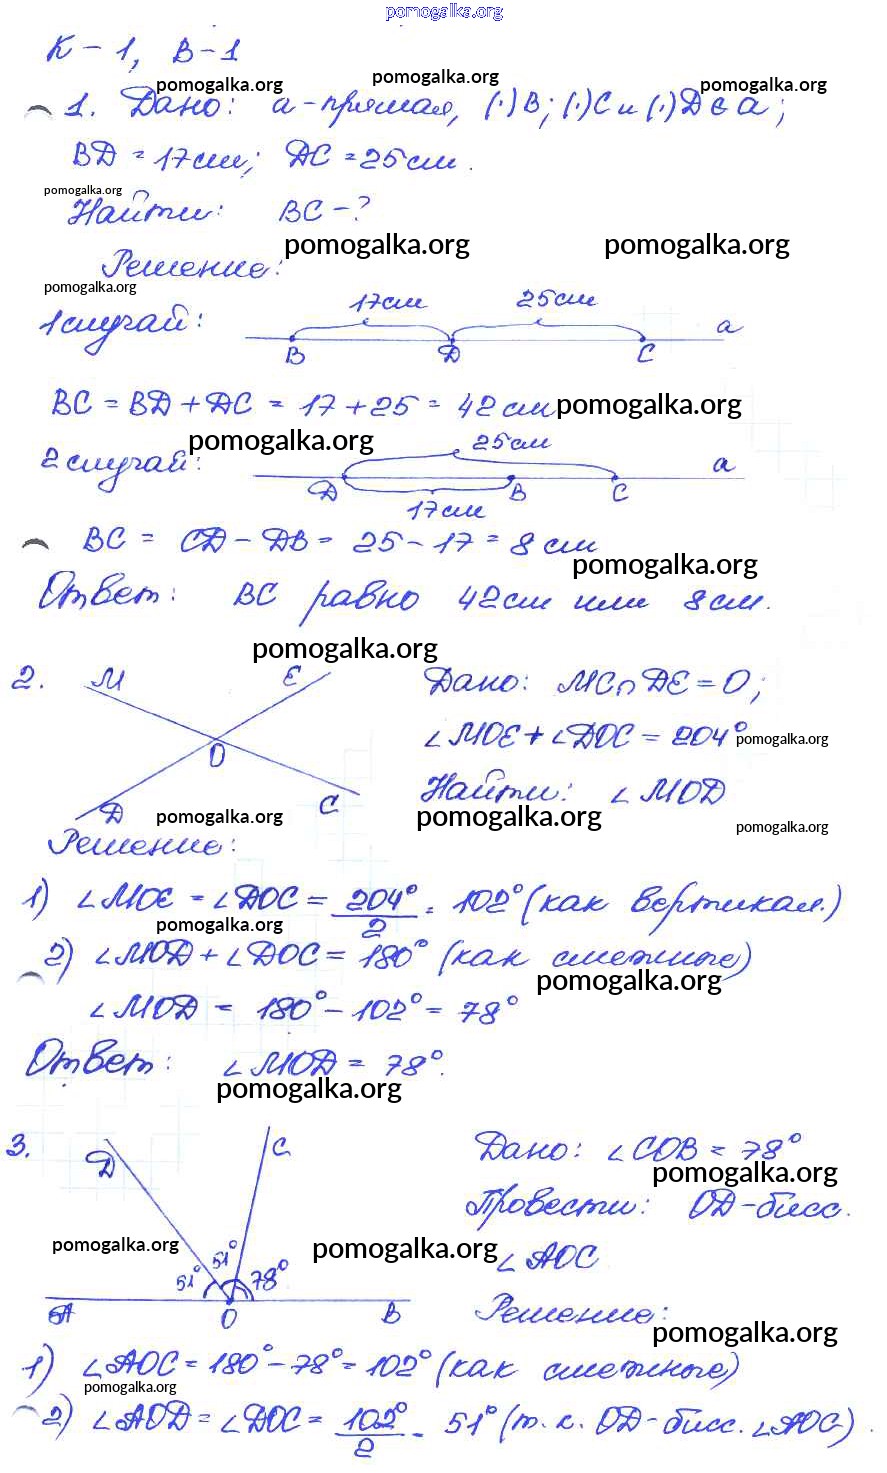 pomogalka.org
К - 1, В - 1
pomogalka.org pomogalka.org pomogalka.org
1. Дано: а - прямая, (·)В; (·)С и (·)D ∈ а;
ВD = 17 см; DC = 25 см.
pomogalka.org
Найти: ВС - ?
pomogalka.org pomogalka.org
Решение:
pomogalka.org
1 случай: 17 см 25 см а
В D С
ВС = ВD + DC = 17 + 25 = 42 см pomogalka.org
pomogalka.org
2 случай: 25 см а
D В С
17 см
ВС = CD - DB = 25 - 17 = 8 см
pomogalka.org
Ответ: ВС равно 42 см или 8 см.
pomogalka.org
2. М Е Дано: МС ∩ DE = О;
О ∠МОЕ + ∠DOC = 204° pomogalka.org
D С Найти: ∠MOD
pomogalka.org pomogalka.org pomogalka.org
Решение:
1) ∠МОЕ = ∠DOC = 204°/2 = 102° (как вертикал.)
pomogalka.org
2) ∠MOD + ∠DOC = 180° (как смежные)
pomogalka.org
∠MOD = 180° - 102° = 78°
Ответ: ∠MOD = 78°.
pomogalka.org
3. D С Дано: ∠COB = 78°
pomogalka.org
Провести: OD - бисс.
pomogalka.org pomogalka.org
∠AOC
51° 51° 78°
А О В Решение:
pomogalka.org
1) ∠AOC = 180° - 78° = 102° (как смежные)
pomogalka.org
2) ∠AOD = ∠DOC = 102°/2 = 51° (т. к. OD - бисс. ∠AOC).